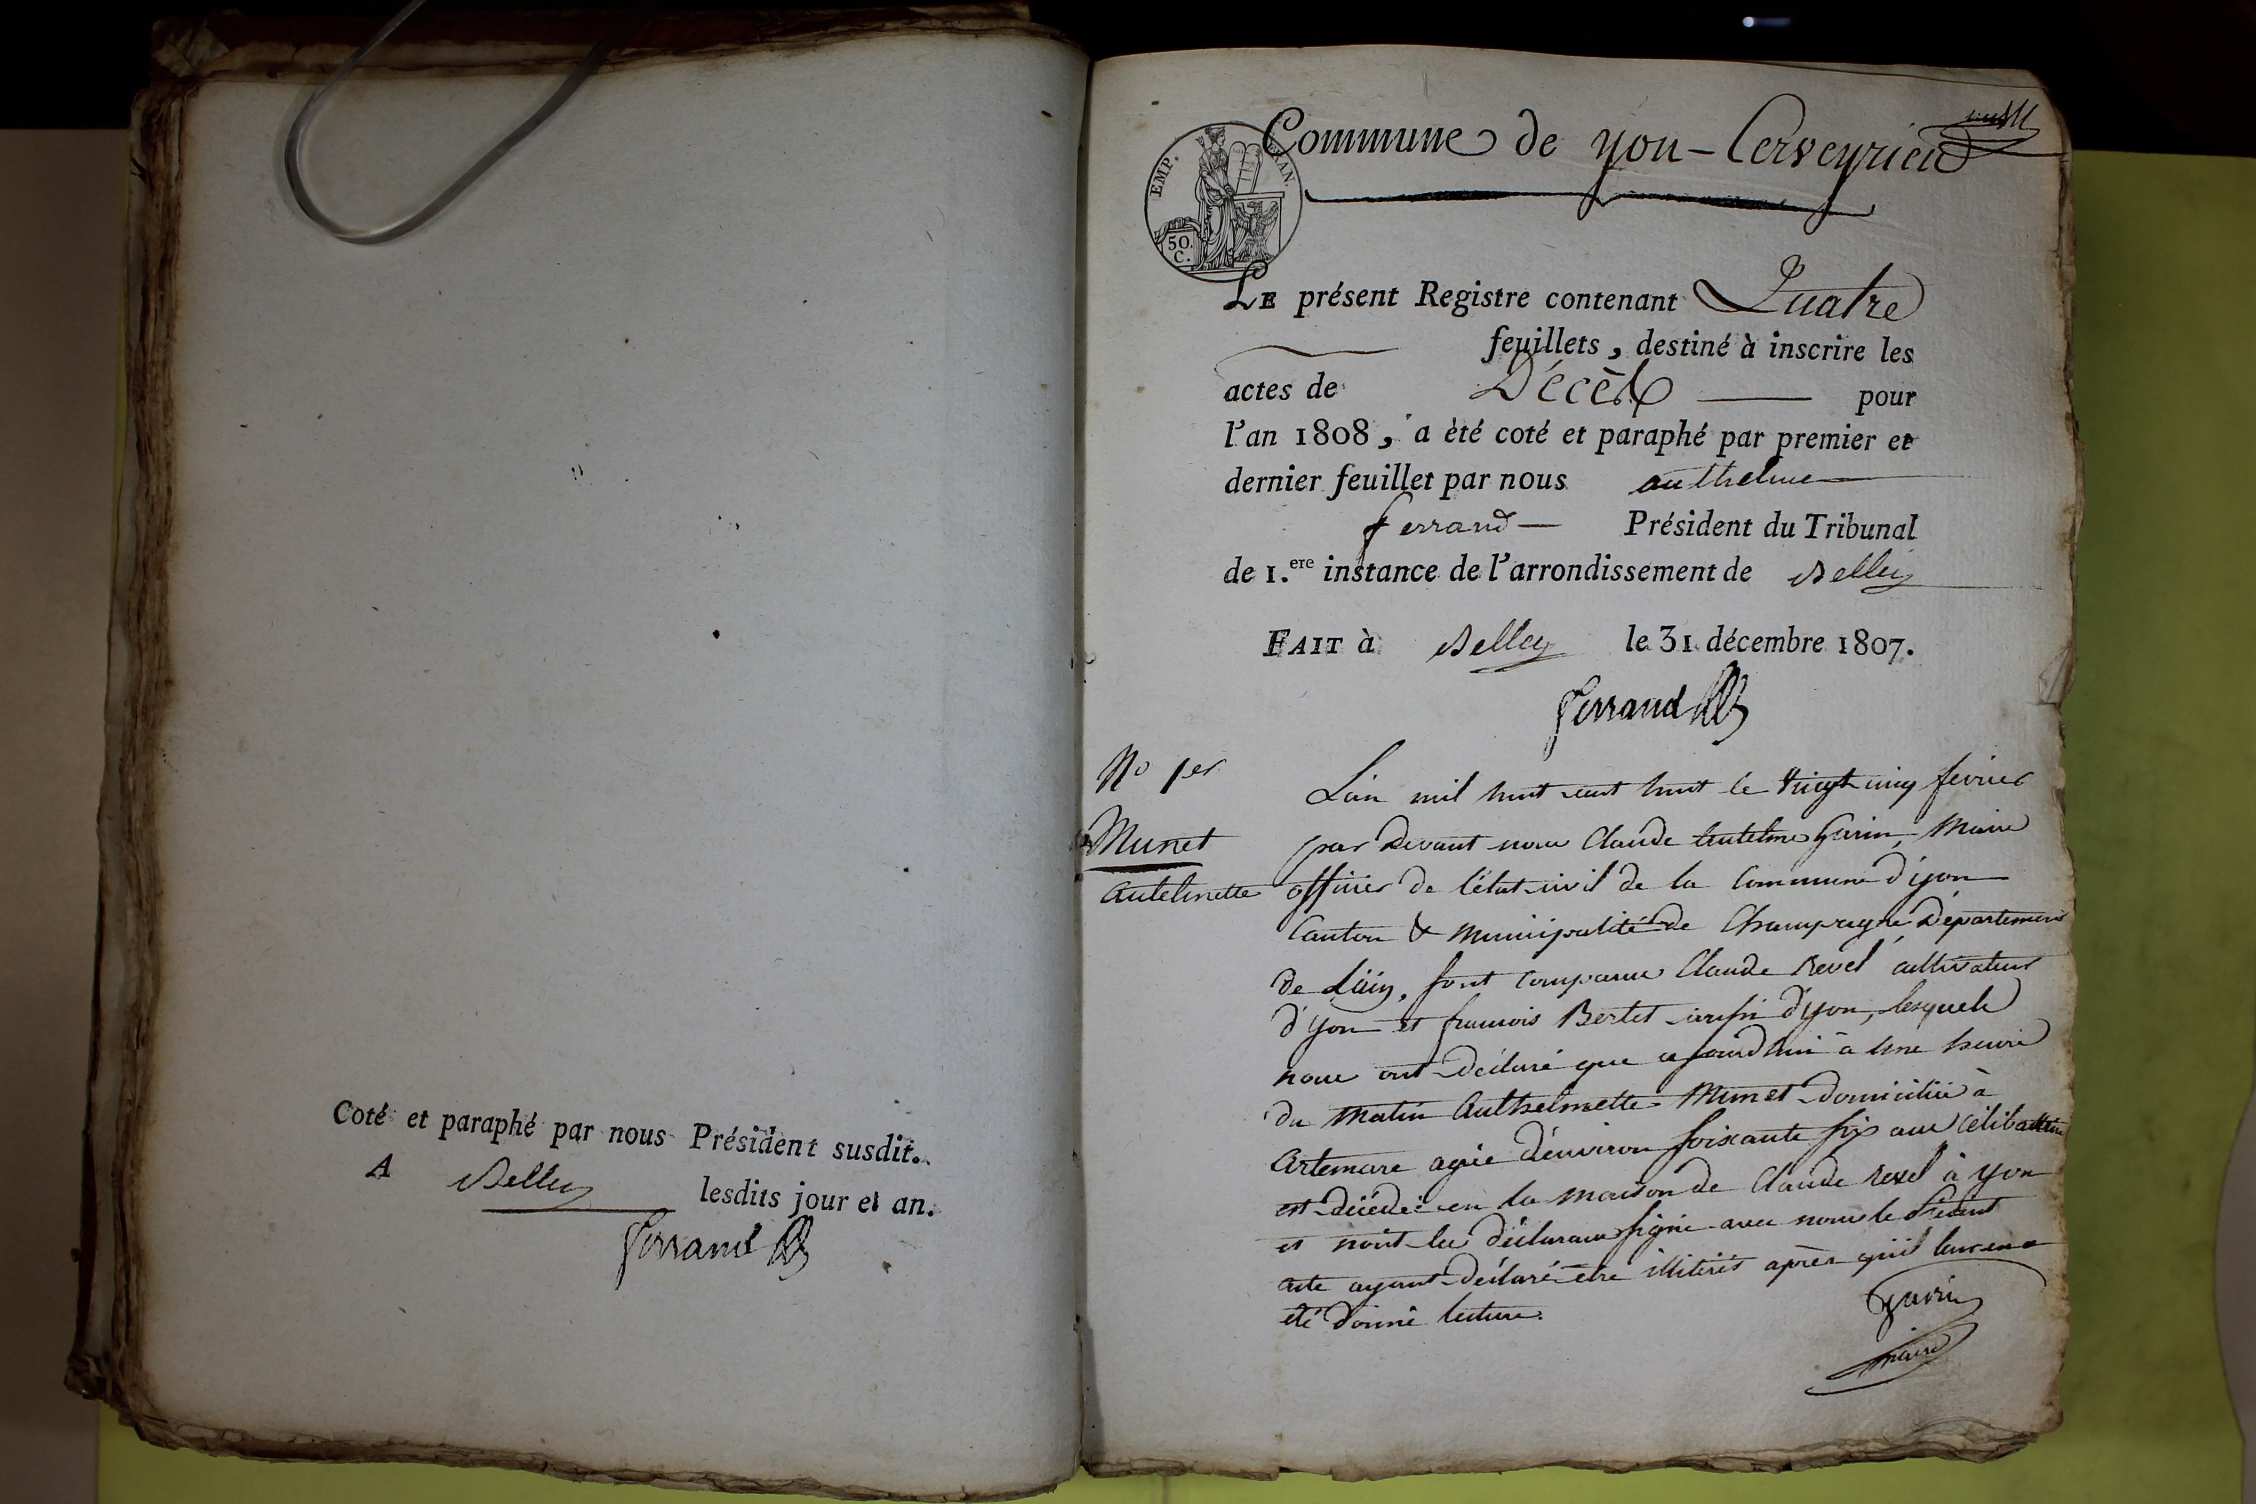 Coté et paraphé par nous Président susdit.
A Belley lesdits jour et an.
Ferrand
Commune de yon-Cerveyrieu
EMP. FRAN.
50.
C.
LE présent Registre contenant Quatre
feuillets, destiné à inscrire les
actes de Décès pour
l'an 1808, a èté coté et paraphé par premier et
dernier feuillet par nous anthelme
ferrand Président du Tribunal
de 1.ere instance de l'arrondissement de Belley
FAIT à Belley le 31 décembre 1807.
Ferrand
No 1er
Munet
Antelmette
L'an mil huit cent huit le vingt cinq fevrier
par devant nous Claude Antelme Garin, Maire
officier de l'état civil de la Commune d'yon
Canton & Municipalité de Champagne Département
de L'ain, sont comparus Claude Revel cultivateur
d'yon et francois Bertet aussi d'yon, lesquels
nous ont déclaré que ce jourd'hui à une heure
du matin Anthelmette Munet domiciliée à
Artemare agée d'environ soixante six ans Célibattaire
est décédée en la maison de Claude revel à yon
et n'ont les déclarans signé avec nous le présent
acte ayant déclaré etre illitérés après qu'il leur en a
été donné lecture.
Garin
maire